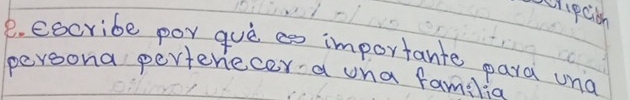 ripción
2. escribe por qué es importante para una
persona pertenecer a una familia